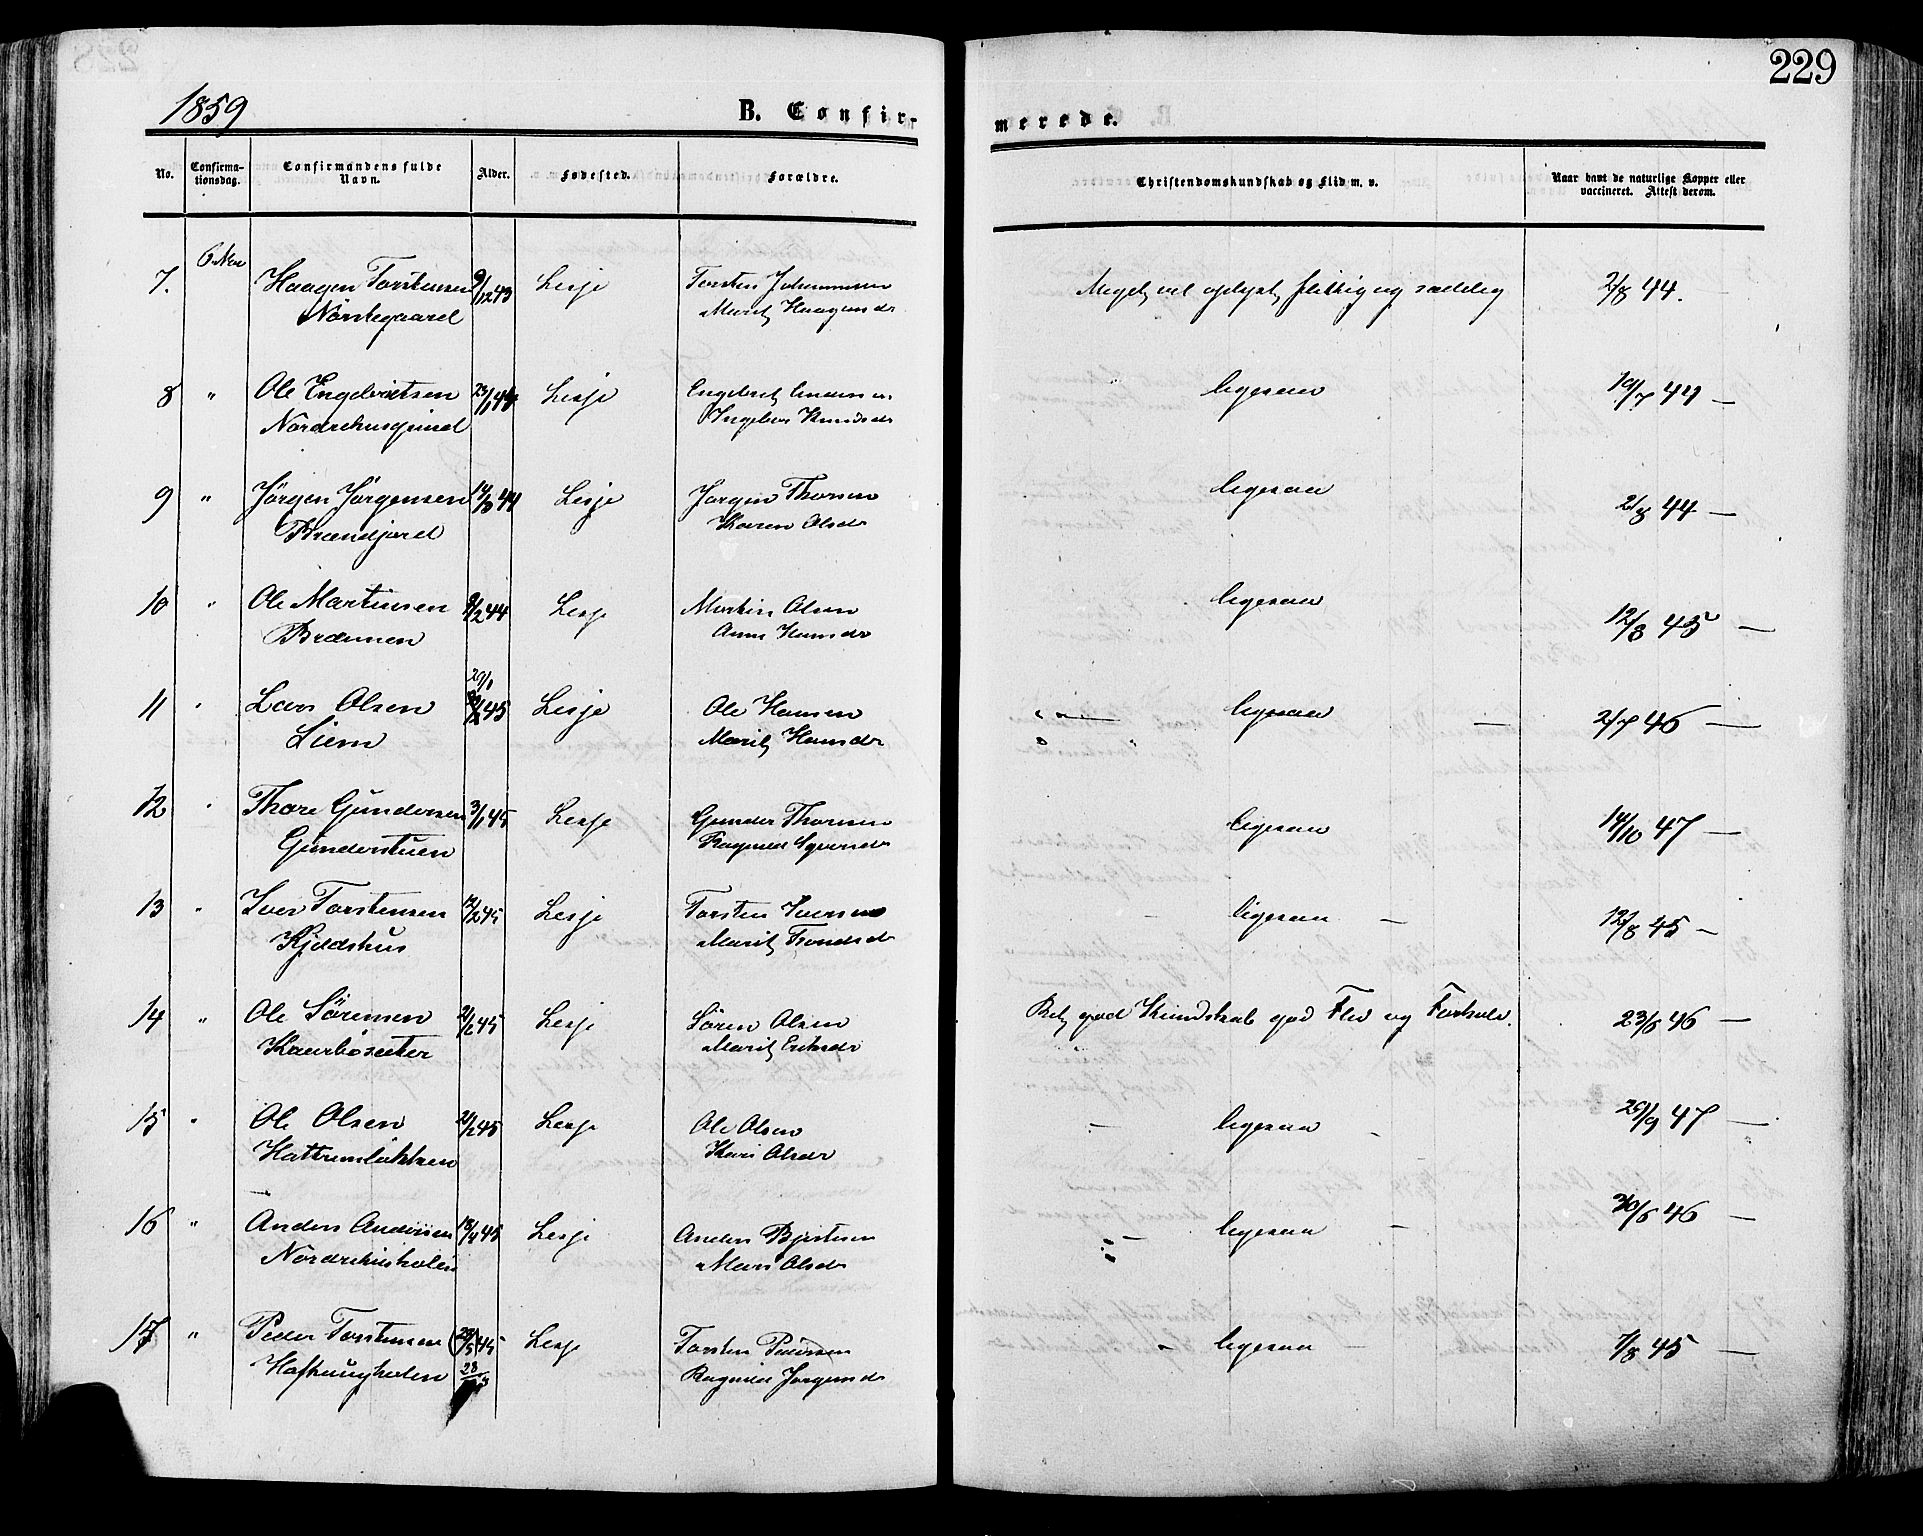 229
1859
B. Confir-
merede.
No.
Confirma-
tionsdag.
Confirmandens fulde
Navn.
Alder.
Fødested.
Forældre.
Christendomskundskab og Flid m. v.
Naar havt de naturlige Kopper eller
vaccineret. Attest derom.
7. Haagen Torstensen 9/12 43 Lesje Torsten Johannesen Meget vel oplyst, flittig og sædelig 2/8 44.
Nørstegaard Marit Haagensdr
8 " Ole Engebretsen 23/1 44 Lesje Engebret Andersen ligesaa 19/7 44 —
Nordrehusgrind Ingebor Knudsdr
9 " Jörgen Jörgensen 14/3 44 Lesje Jörgen Thoresen ligesaa 2/8 44 —
Brændjord Karen Olsdr
10 " Ole Martinsen 9/2 44 Lesje Martin Olsen ligesaa 12/8 45 —
Brædnnen Anne Hansdr
29/1
11 " Lars Olsen 45 Lesje Ole Hansen ligesaa — 2/7 46 —
Liem Marit Hansdr
12 " Thore Gundersen 3/1 45 Lesje Gunder Thoresen ligesaa 14/10 47 —
Gunderstuen Ragnild Syversdr
13 " Iver Torstensen 12/2 45 Lesje Torsten Iversen ligesaa — 12/8 45 —
Kjeldshus Marit Trondsdr
14 " Ole Sörensen 2/2 45 Lesje Sören Olsen Ret god Kundskab god Flid og Forhold. 23/6 46 —
Kaurböseter Marit Eriksdr
15 " Ole Olsen 2/2 45 Lesje Ole Olsen ligesaa 29/9 47 —
Hattremsløkken Kari Olsdr
16 " Anders Andersen 18/4 45 Lesje Anders Bjertsen ligesaa — 30/6 46 —
Nordrehusholen Mari Olsdr
17 " Peder Torstensen (29/5) 45 Lesje Torsten Pedersen ligesaa — 7/8 45 —
Hafhaugholen 28 Ragnild Jörgensdr